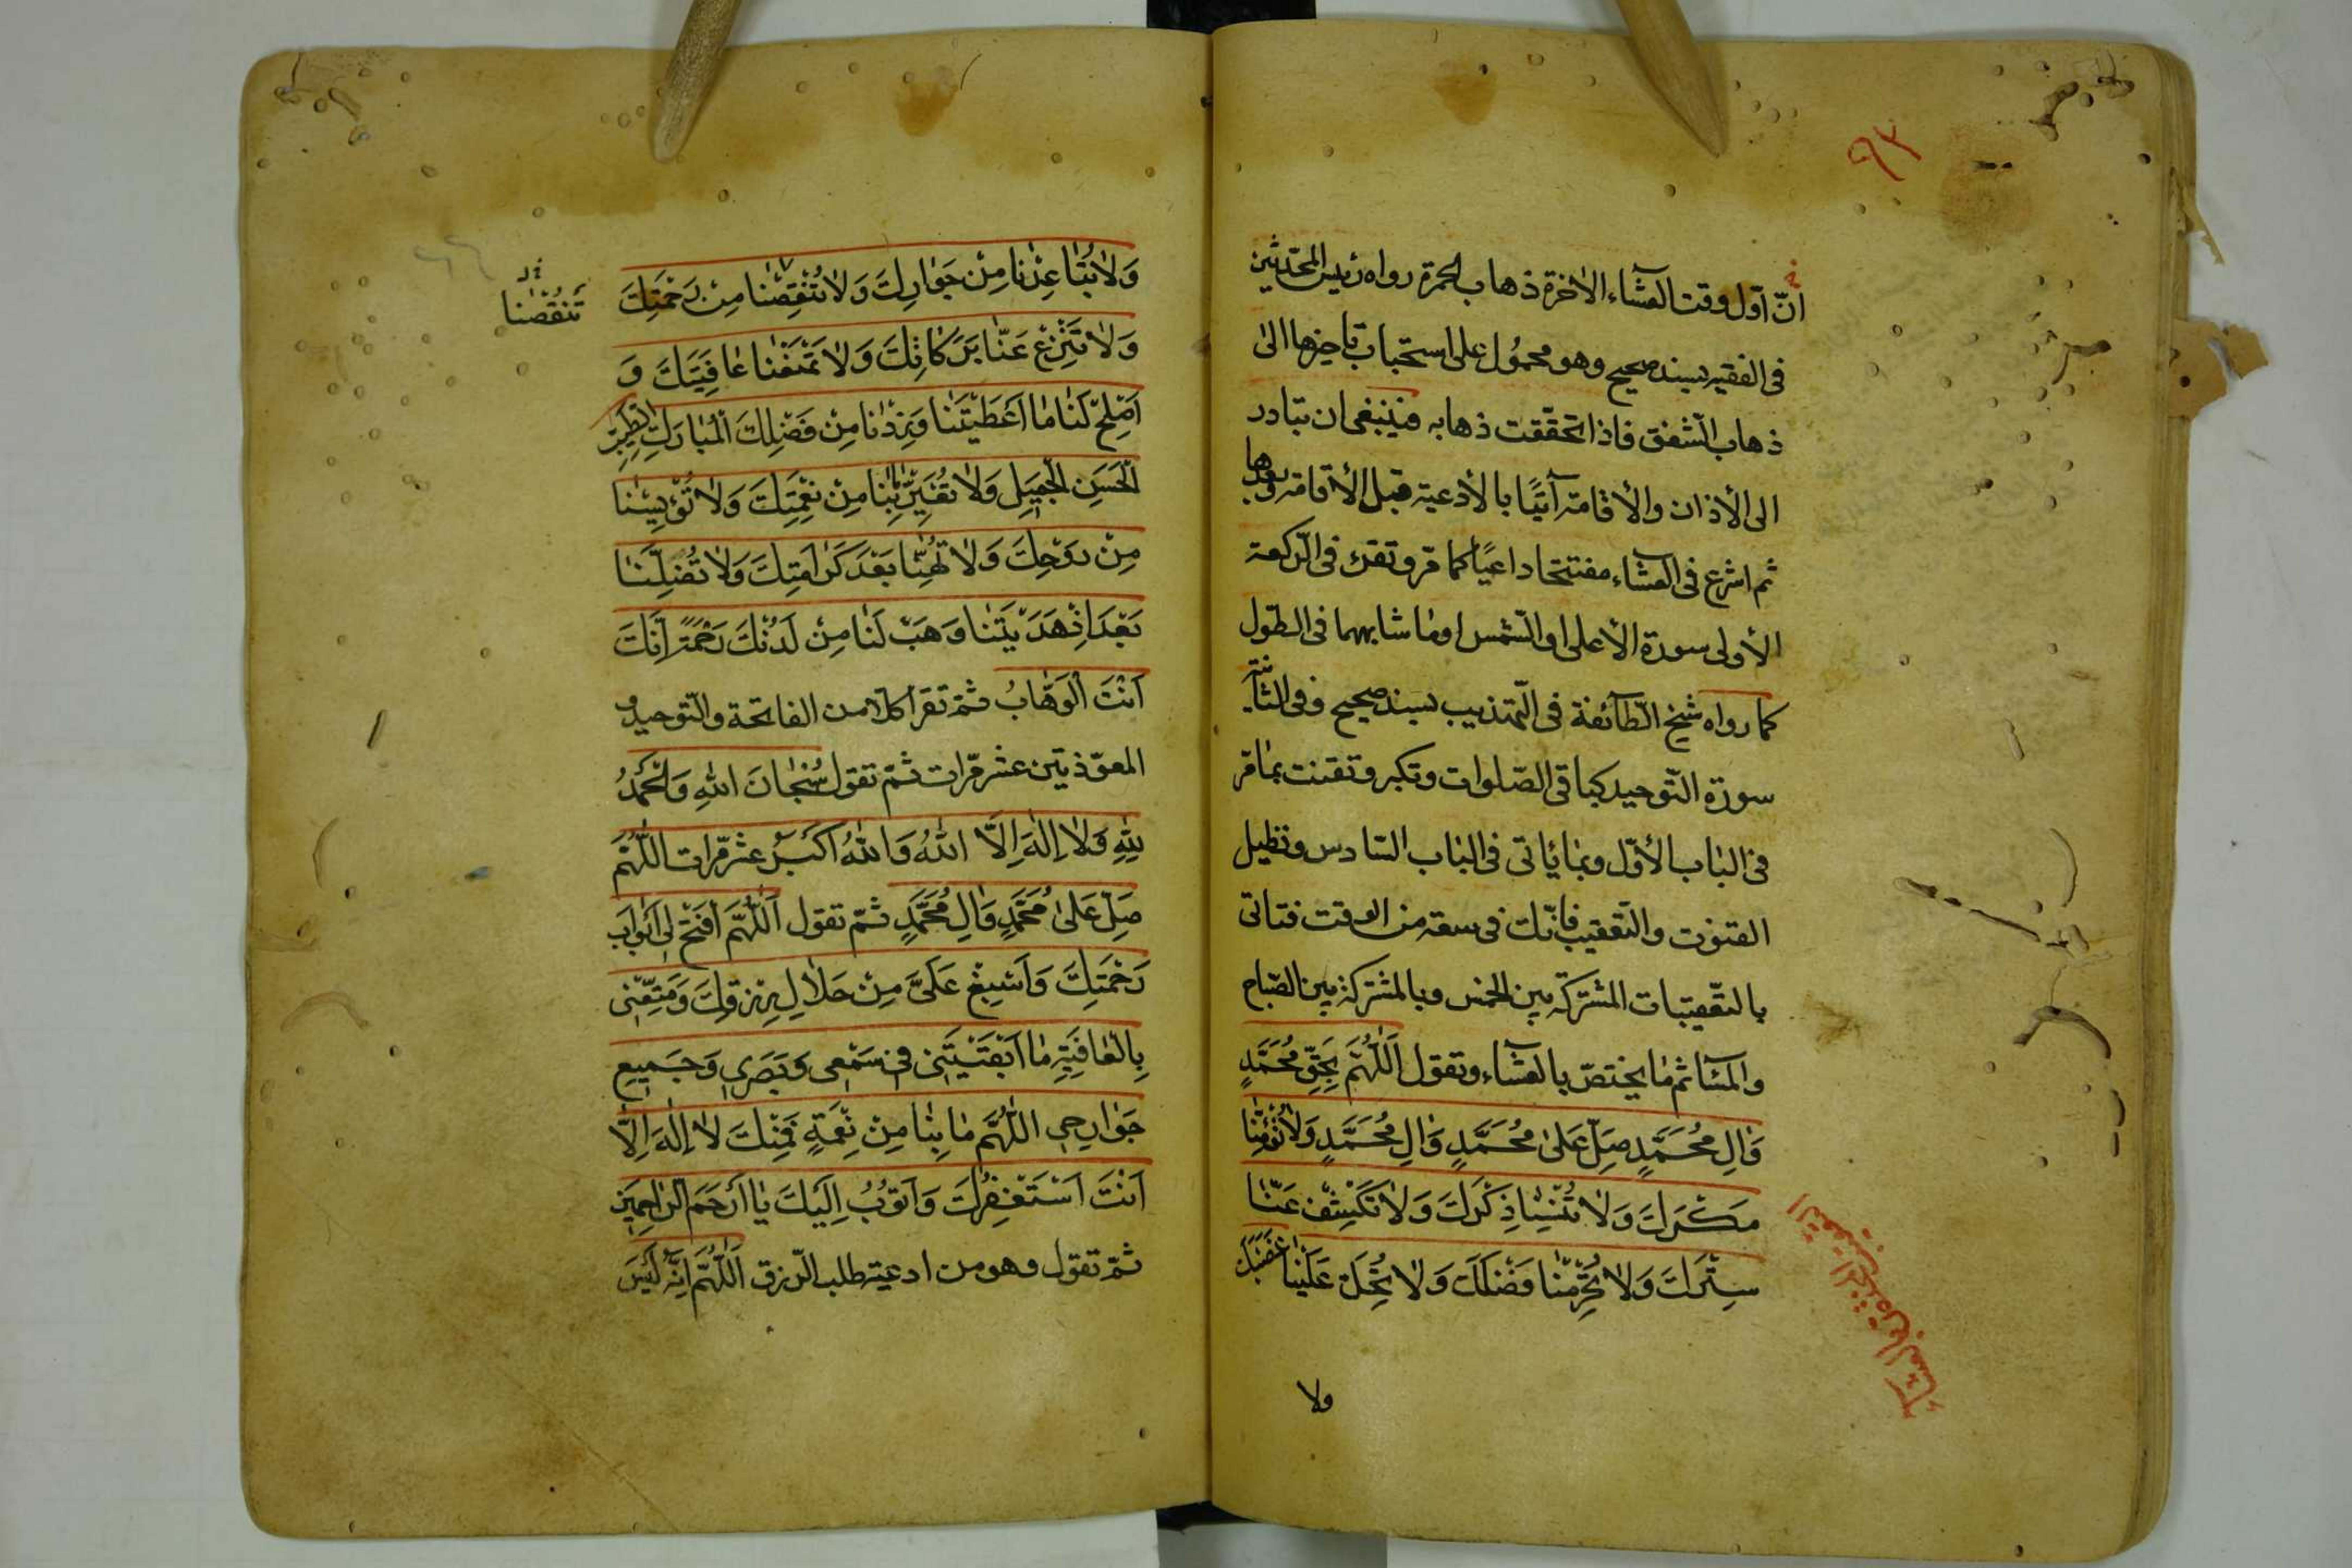 ٩٣
انّ اوّل وقت العشآء الاخرة ذهاب الحمرة رواه رئيس المحدّثين
فى الفقيه بسند صحيح وهو محمول على استحباب تاخيرها الى
ذهاب الشفق فاذا تحقّقت ذهابه فينبغى ان تبادر
الى الأذان والأقامة آتيًا بالأدعية قبل الأقامة وبعدها
ثم اشرع فى العشآء مفتتحا داعيًا كما مرّ وتقرء فى الرّكعة
الأولى سورة الأعلى او الشّمس او ما شابههما فى الطّول
كما رواه شيخ الطّائفة فى التّهذيب بسند صحيح وفى الثّانية
سورة التّوحيد كباقى الصّلوات وتكبر وتقنت بما مرّ
فى الباب الأوّل وبما ياتى فى الباب السّادس وتطيل
القنوت والتّعقيب فانّك فى سعة من الوقت فتاتى
بالتّعقيبات المشتركة بين الخمس وبالمشتركة بين الصّباح
والمسآء ثم ما يختصّ بالعشآء وتقول اَللّٰهُمَّ بِحَقِّ مُحَمَّدٍ
وَاٰلِ مُحَمَّدٍ صَلِّ عَلىٰ مُحَمَّدٍ وَاٰلِ مُحَمَّدٍ وَلاٰ تُؤْمِنّٰا
مَكْرَكَ وَلاٰ تُنْسِنٰا ذِكْرَكَ وَلاٰ تَكْشِفْ عَنّٰا
سِتْرَكَ وَلاٰ تَحْرِمْنٰا فَضْلَكَ وَلاٰ تُحِلَّ عَلَيْنٰا غَضَبَكَ
ولا
وَلاٰ تُبٰاعِدْنٰا مِنْ جَوٰارِكَ وَلاٰ تُنْقِصْنٰا مِنْ رَحْمَتِكَ
تَنْقُصْنٰا
وَلاٰ تَنْزِعْ عَنّٰا بَرَكٰاتِكَ وَلاٰ تَمْنَعْنٰا عٰافِيَتَكَ وَ
اَصْلِحْ لَنٰا مٰا اَعْطَيْتَنٰا وَزِدْنٰا مِنْ فَضْلِكَ الْمُبٰارَكِ الطَّيِّبِ
الْحَسَنِ الْجَمِيلِ وَلاٰ تُغَيِّرْ مٰا بِنٰا مِنْ نِعْمَتِكَ وَلاٰ تُؤْيِسْنٰا
مِنْ رَوْحِكَ وَلاٰ تُهِنّٰا بَعْدَ كَرٰامَتِكَ وَلاٰ تُضِلَّنٰا
بَعْدَ اِذْ هَدَيْتَنٰا وَهَبْ لَنٰا مِنْ لَدُنْكَ رَحْمَةً اِنَّكَ
اَنْتَ الْوَهّٰابُ ثمّ تقرا كلّا من الفاتحة والتّوحيد و
المعوّذتين عشر مرّات ثمّ تقول سُبْحٰانَ اللهِ وَالْحَمْدُ
لِلّٰهِ وَلاٰ اِلٰهَ اِلَّا اللهُ وَاللهُ اَكْبَرُ عشر مرّات اللّٰهُمَّ
صَلِّ عَلىٰ مُحَمَّدٍ وَاٰلِ مُحَمَّدٍ ثمّ تقول اَللّٰهُمَّ افْتَحْ لى اَبْوٰابَ
رَحْمَتِكَ وَاَسْبِغْ عَلَىَّ مِنْ حَلاٰلِ رِزْقِكَ وَمَتِّعْنِى
بِالْعٰافِيَةِ مٰا اَبْقَيْتَنِى فى سَمْعِى وَبَصَرِى وَجَمِيعِ
جَوٰارِحِى اللّٰهُمَّ مٰا بِنٰا مِنْ نِعْمَةٍ فَمِنْكَ لاٰ اِلٰهَ اِلّٰا
اَنْتَ اَسْتَغْفِرُكَ وَاَتُوبُ اِلَيْكَ يٰا اَرْحَمَ الرّٰاحِمِينَ
ثمّ تقول وهو من ادعية طلب الرّزق اَللّٰهُمَّ اِنَّهُ لَيْسَ